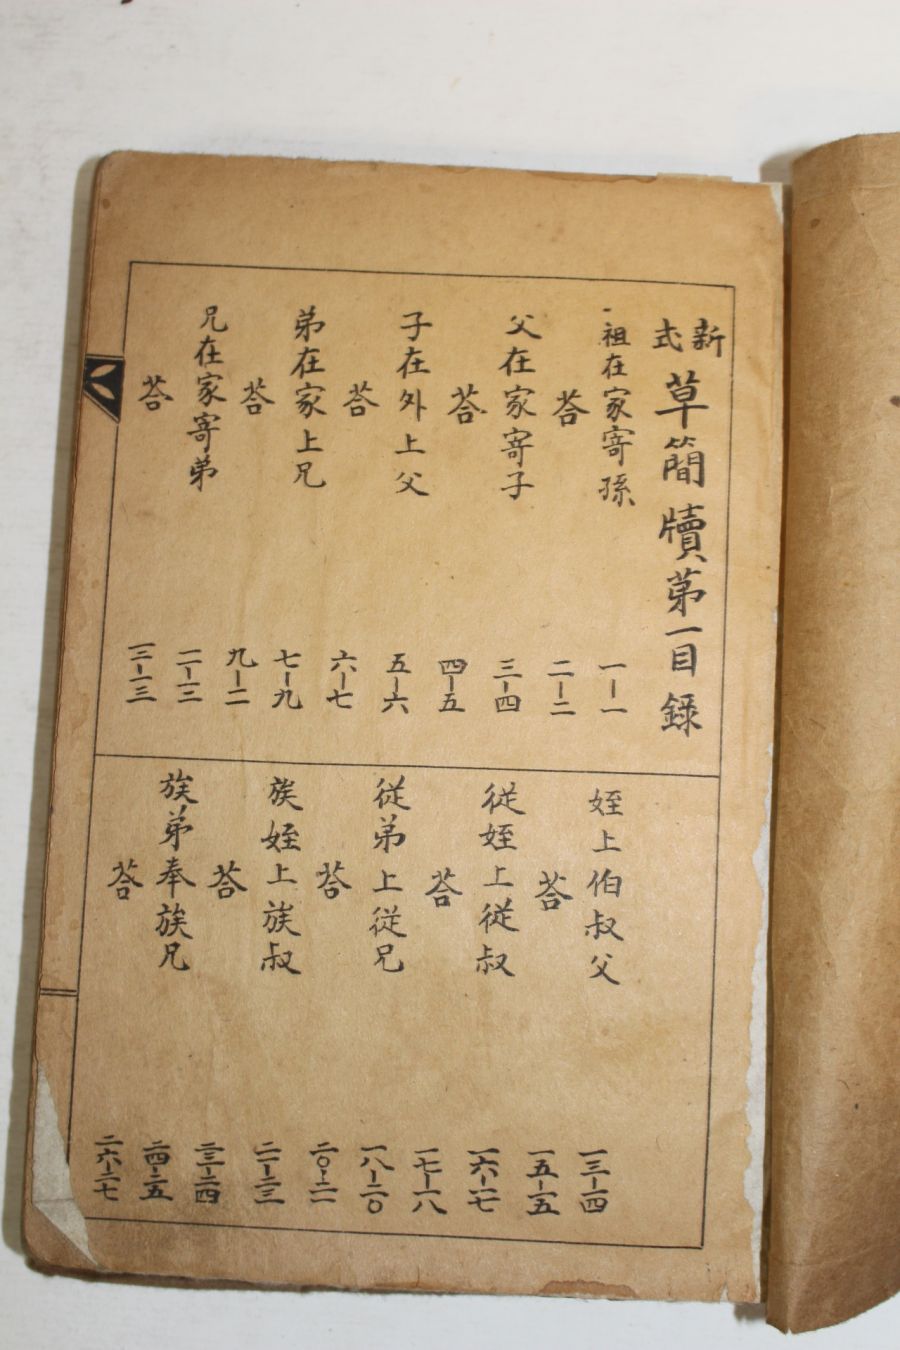 新式 草簡牘第一目錄
祖在家寄孫 一-一
荅 二-二
父在家寄子 三-四
荅 四-五
子在外上父 五-六
荅 六-七
弟在家上兄 七-九
荅 九-一一
兄在家寄弟 一一-一二
荅 一二-一三
姪上伯叔父 一三-一四
荅 一五-一五
從姪上從叔 一六-一七
荅 一七-一八
從弟上從兄 一八-二〇
荅 二〇-二一
族姪上族叔 二一-二三
荅 二三-二四
族弟奉族兄 二四-二五
荅 二六-二七